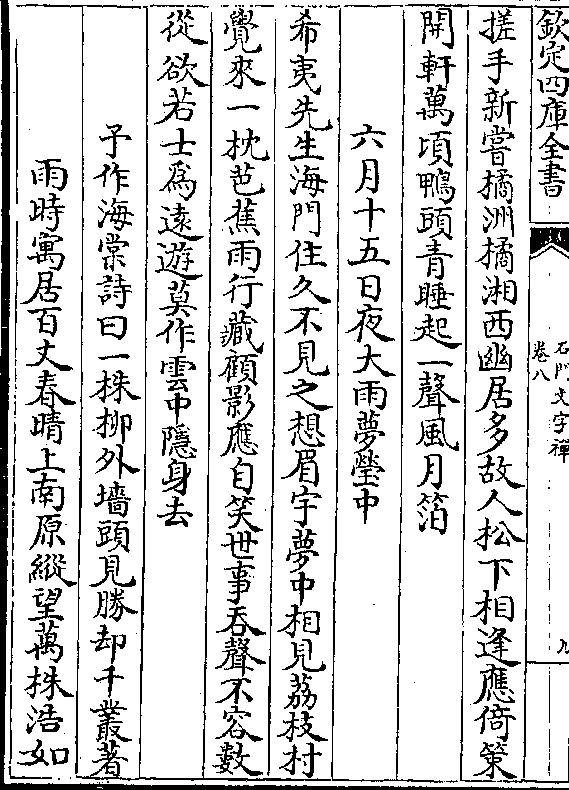 欽定四庫全書
石門文字禪
卷八
九
搓手新嘗橘洲橘湘西幽居多故人松下相逢應倚策
開軒萬頃鴨頭青睡起一聲風月笛
六月十五日夜大雨夢瑩中
希夷先生海門住久不見之想眉宇夢中相見荔枝村
覺來一枕芭蕉雨行藏顧影應自笑世事吞聲不容數
從欲若士為遠遊莫作雲中隱身去
予作海棠詩曰一株柳外墻頭見勝却千叢著
雨時寓居百丈春晴上南原縱望萬株浩如